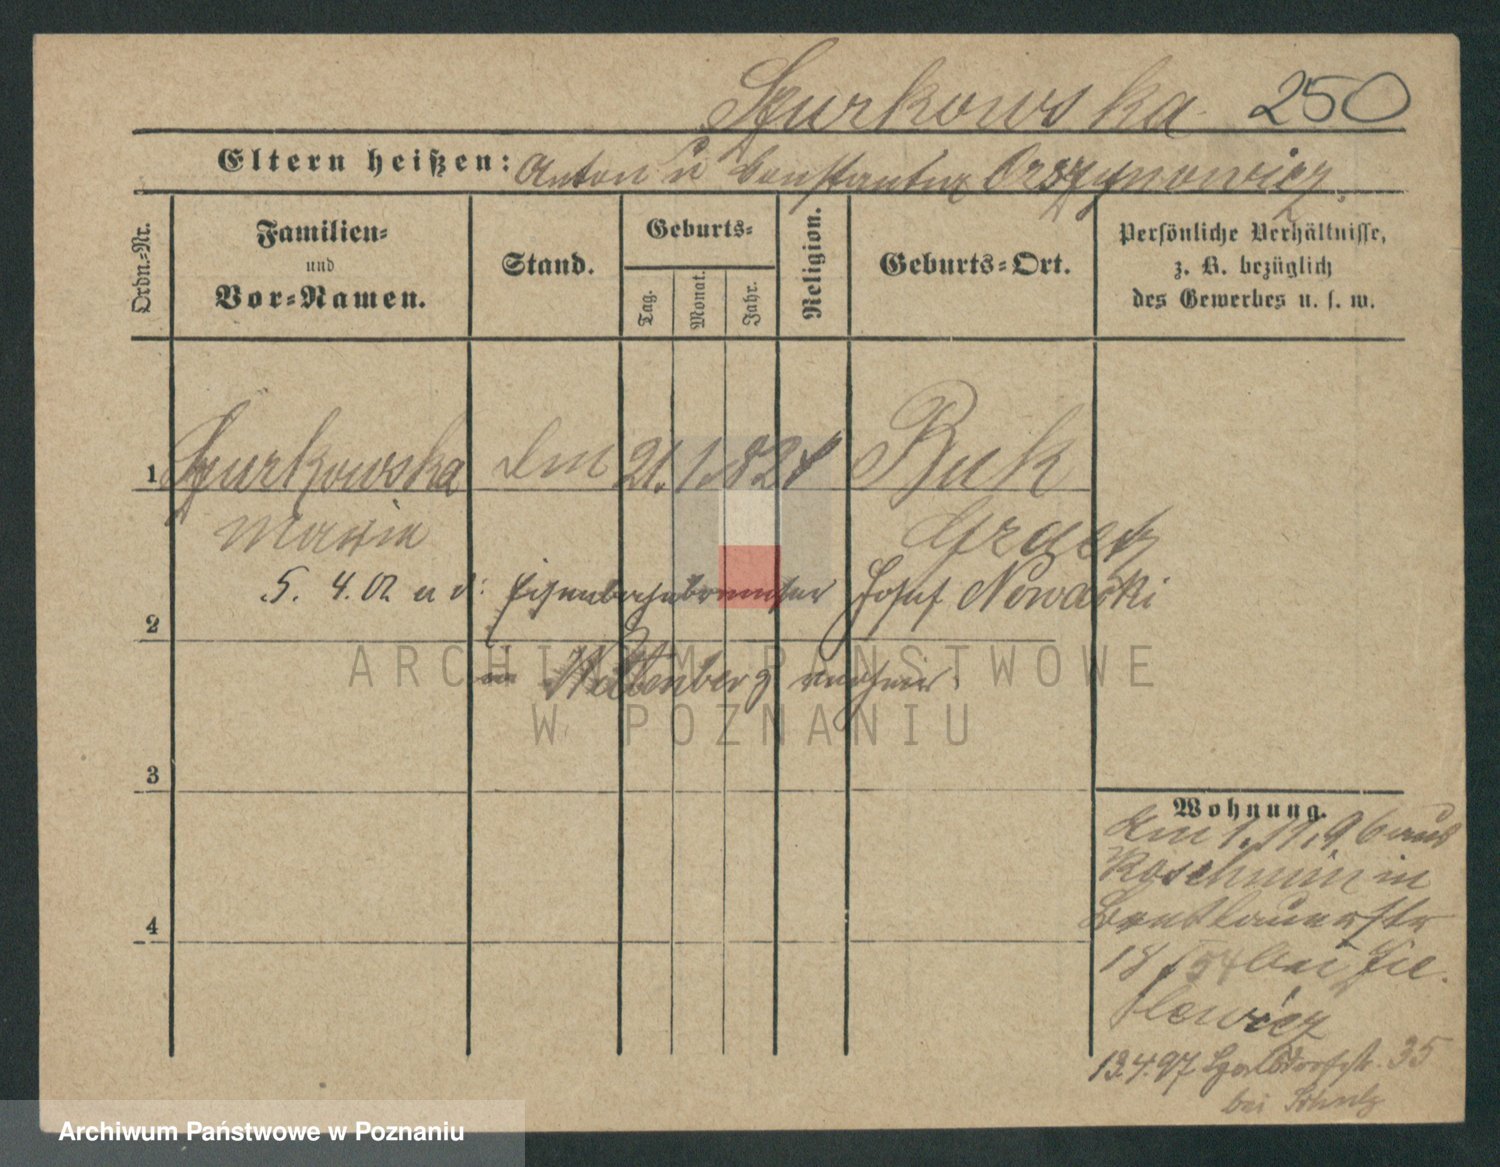 Szurkowska 250
Eltern heißen: Anton u Constantia
Ordn.-Nr.
Familien-
und
Vor-Namen.
Stand.
Geburts-
Tag.
Monat.
Jahr.
Religion.
Geburts-Ort.
Persönliche Verhältnisse,
z. B. bezüglich
des Gewerbes u. s. w.
1 Szurkowska 21. 1. 82 Buk
Maria Graetz
5. 4. 02 a d. Eisenbahnbremser Josef Nowacki
2
in Wittenberg verheir.
3
Wohnung.
am 1. 11. 96 aus
Koschmin in
4
18 bei
13.4.97 35
bei Schulz
ARCHIWUM PAŃSTWOWE
W POZNANIU
Archiwum Państwowe w Poznaniu